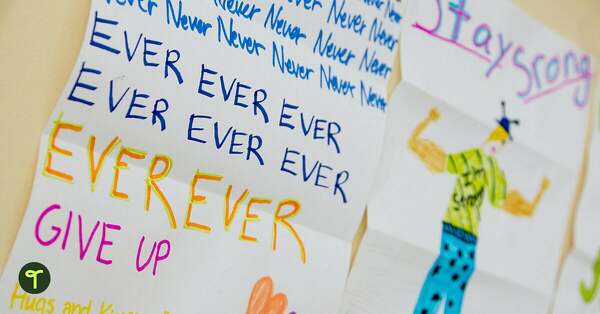 Never Never Never Never
Never Never Never Never Never
Never Never Never Never Never
EVER EVER EVER
EVER EVER EVER
EVER EVER
GIVE UP
Hugs and
Stay Srong
I'm
strong